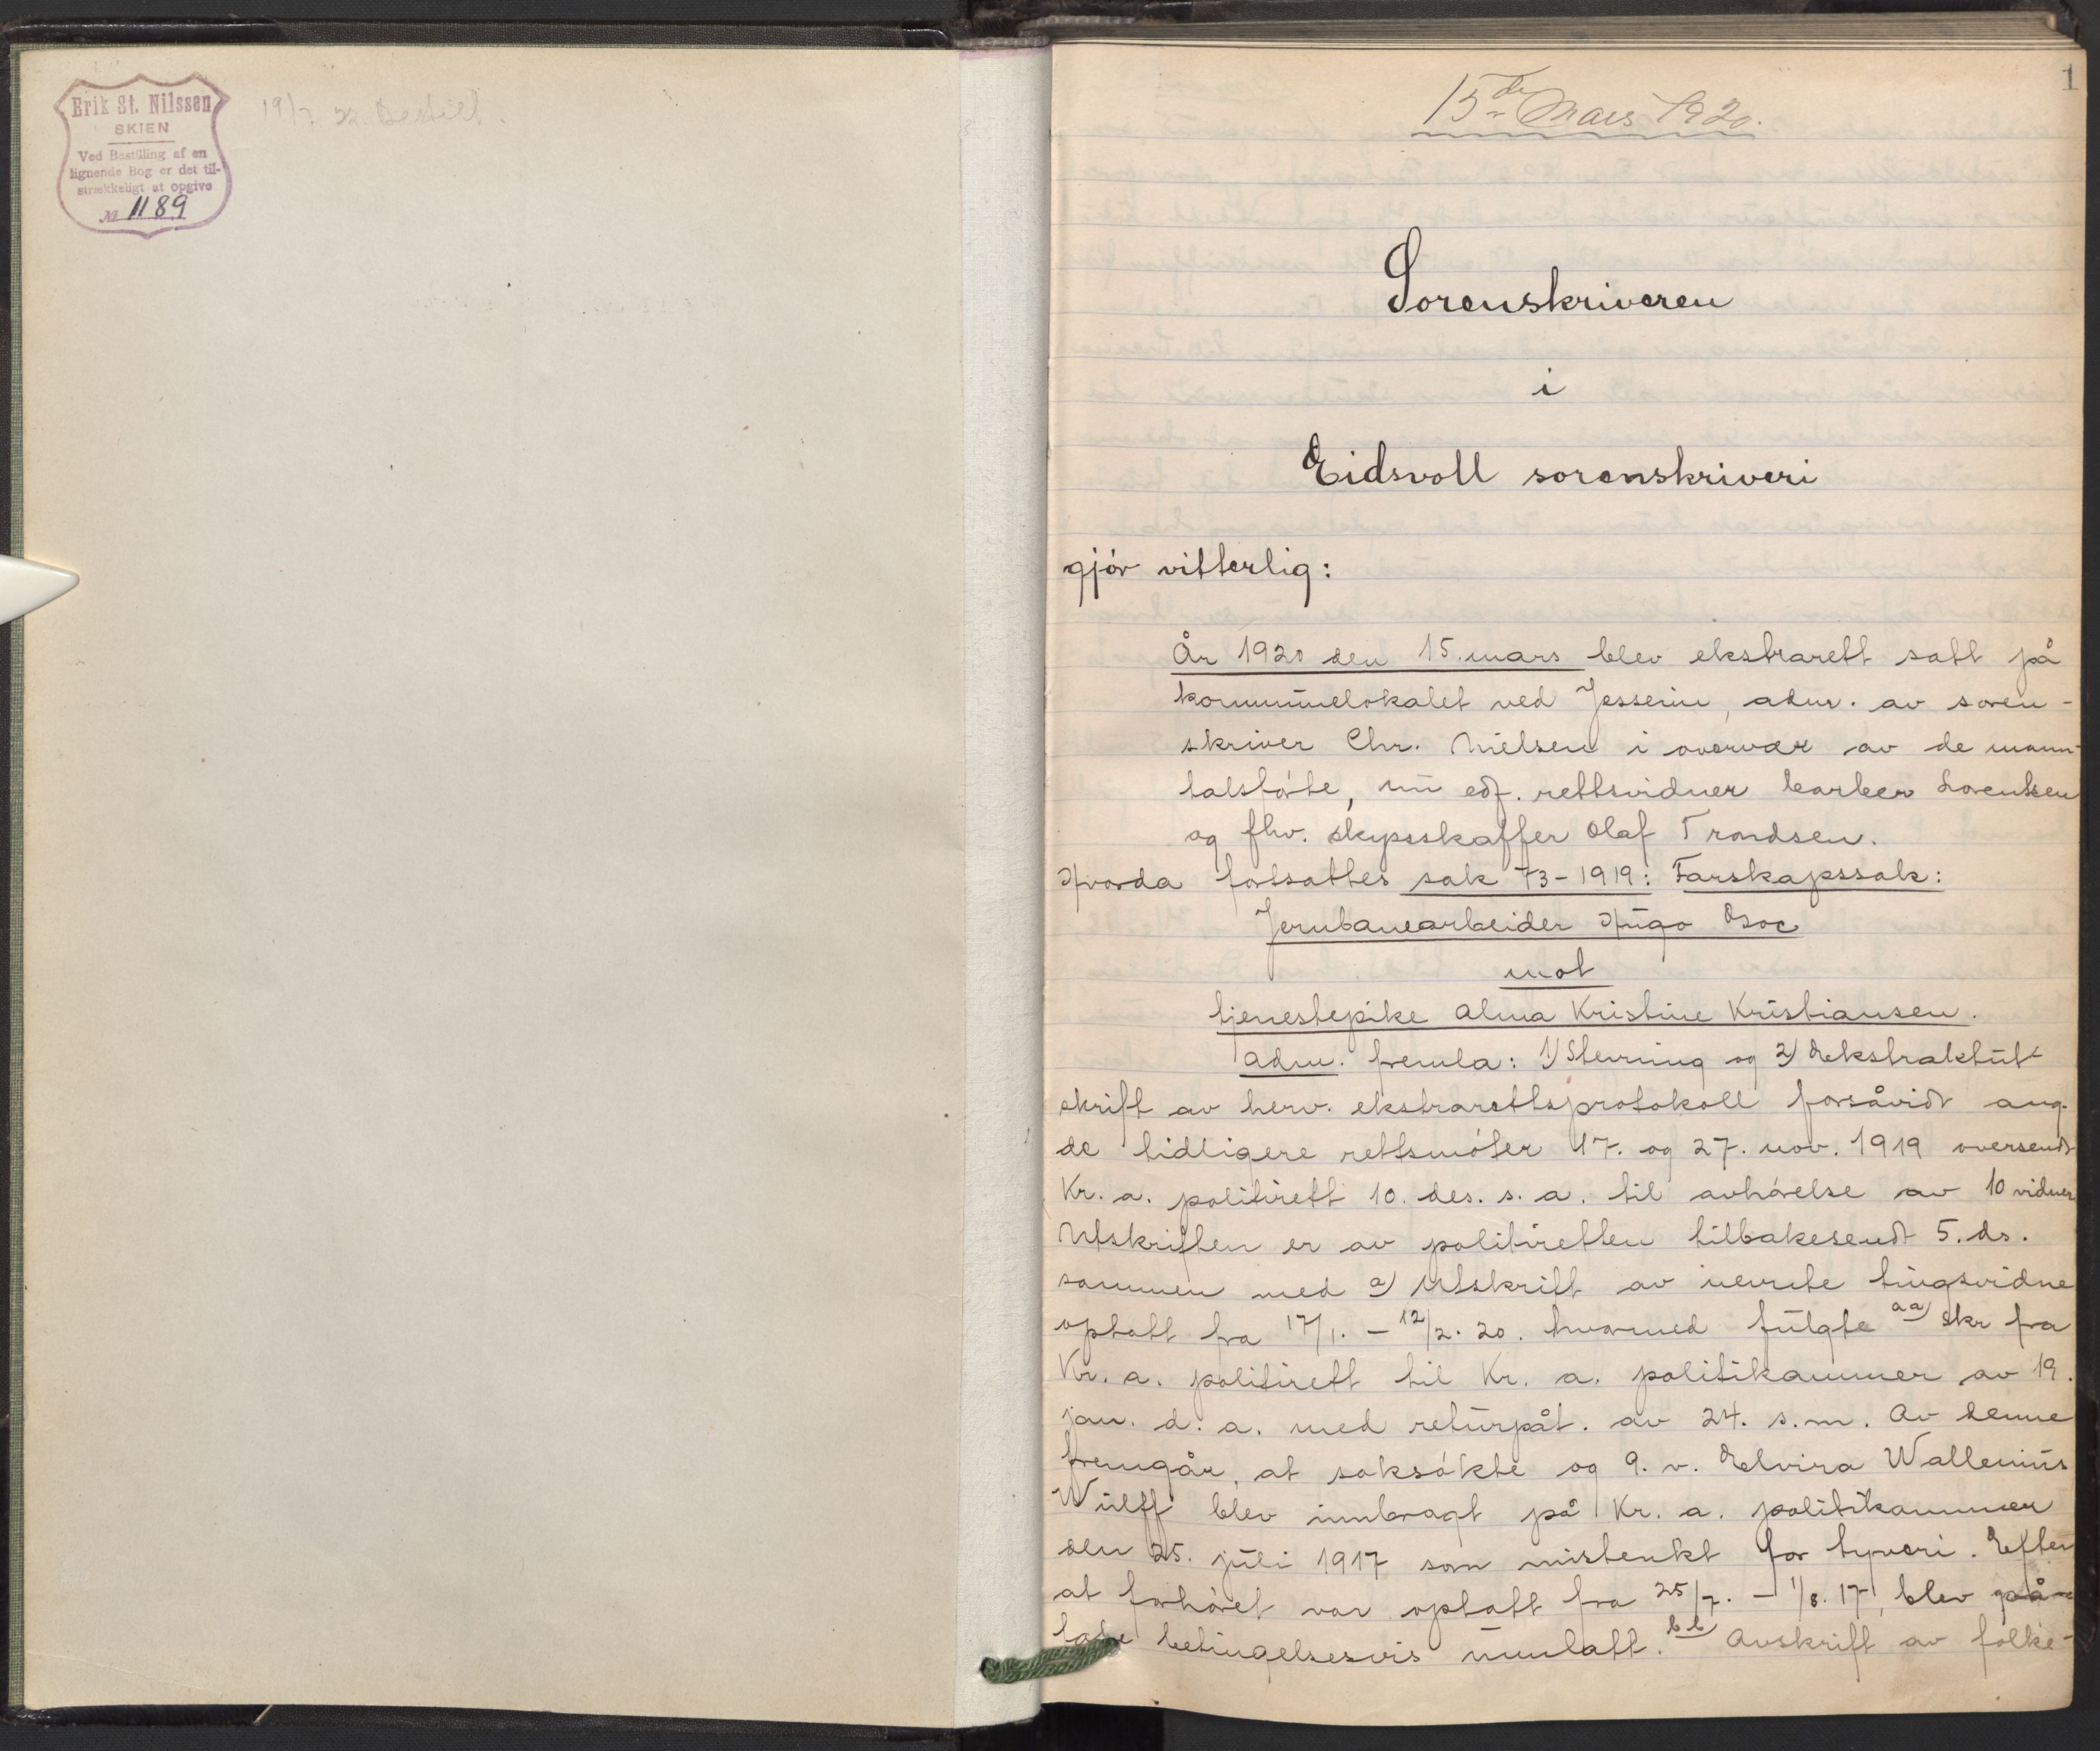 Erik St. Nilssen
SKIEN
Ved Bestilling af en
lignende Bog er det til-
strækkeligt at opgive
№ 1189
19/7 22. Bestilt.
1
15de Mars 1920.
Sorenskriveren
i
Eidsvoll sorenskriveri
gjór vitterlig:
År 1920 den 15. mars blev ekstrarett satt på
kommunelokalet ved Jessheim, adm. av soren-
skriver Chr. Nielsen i overvær av de mann-
talsfórte, nu edf. rettsvidner barber Lorentsen
og fhv. skysskaffer Olaf Trondsen.
Hvorda fortsattes sak 73-1919: Farskapssak:
Jernbanearbeider Hugo
mot
tjenestepike Alma Kristine Kristiansen.
Adm. fremla: 1) Stevning og 2) Ekstraktut-
skrift av herv. ekstrarettsprotokoll forsåvidt ang.
de tidligere rettsmóter 17. og 27. nov. 1919 oversendt
Kr. a. politirett 10. des. s. a. til avhórelse av 10 vidner
Utskriften er av politiretten tilbakesendt 5. ds.
sammen med a) Utskrift av nevnte tingsvidne
optatt fra 17/1. - 12/2. 20. hvormed fulgte aa) skr fra
Kr. a. politirett til Kr. a. politikammer av 19.
jan. d. a. med returpåt. av 24. s. m. Av denne
fremgår, at saksókte og 9. v. Elvira Wallenius
Wulff blev innbragt på Kr. a. politikammer
den 25. juli 1917 som mistenkt for tyveri. Efter
at forhóret var optatt fra 25/7. - 1/8. 17, blev på-
tale betingelsesvis unnlatt. bb) Avskrift av folke-